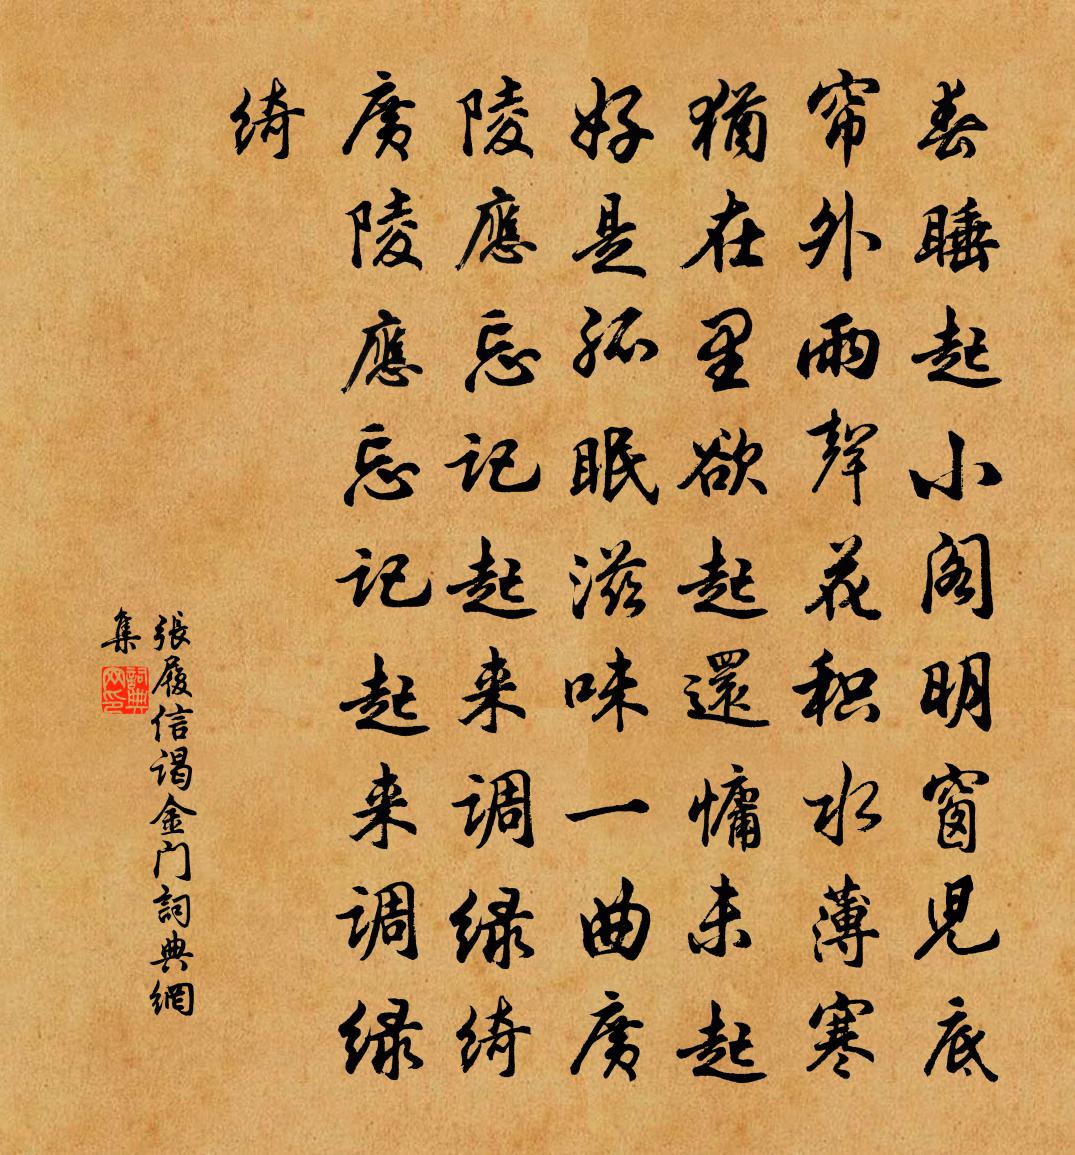 春睡起小阁明窗儿底
帘外雨声花积水薄寒
犹在里欲起还慵未起
好是孤眠滋味一曲广
陵應忘记起来调绿绮
廣陵應忘记起来调绿
绮
張履信谒金门詞典網
集
詞典网印